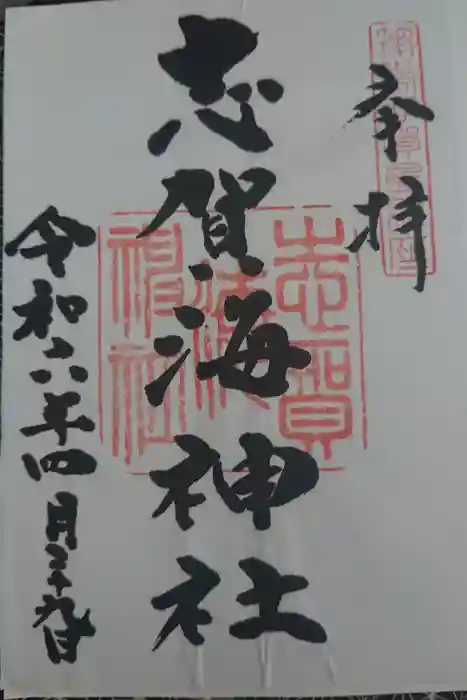 奉拝
志賀海神社
令和六年四月二十九日
志賀
海
神社